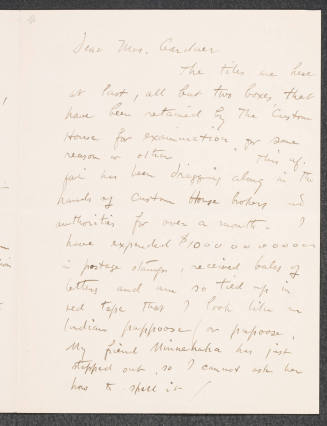 Dear Mrs. Gardner
The tiles are here
at last, all but two boxes that
have been retained by The Custom
House for examination, for some
reason or other. This af-
fair has been dragging along in the
hands of Custom House brokers and
authorities for over a month. I
have expended $1000 00 00 000000
in postage stamps, received bales of
letters and am so tied up in
red tape that I look like an
Indian pappoose/or papoose.
My friend Minnehaha has just
stepped out, so I cannot ask her
how to spell it/